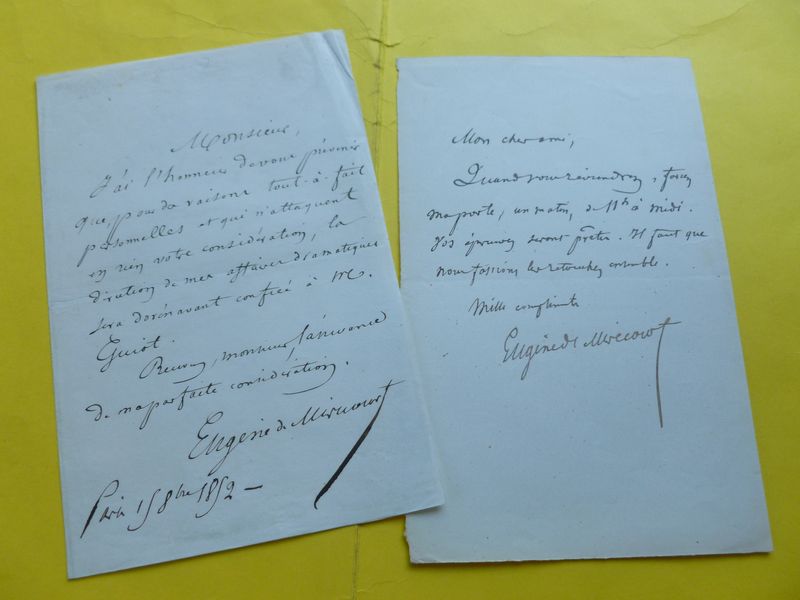 Monsieur,
J'ai l'honneur de vous prévenir
que, pour des raisons tout-à-fait
personnelles et qui n'attaquent
en rien votre considération, la
direction de mes affaires dramatiques
sera dorénavant confiée à M.
Guiot.
Recevez, monsieur, l'assurance
de ma parfaite considération.
Eugène de Mirecourt
Paris 15 8bre 1852 —
Mon cher ami,
Quand vous reviendrez, forcez
ma porte, un matin, de 11h à midi.
Vos épreuves seront prêtes. Il faut que
nous fassions les retouches ensemble.
Mille compliments
Eugène de Mirecourt